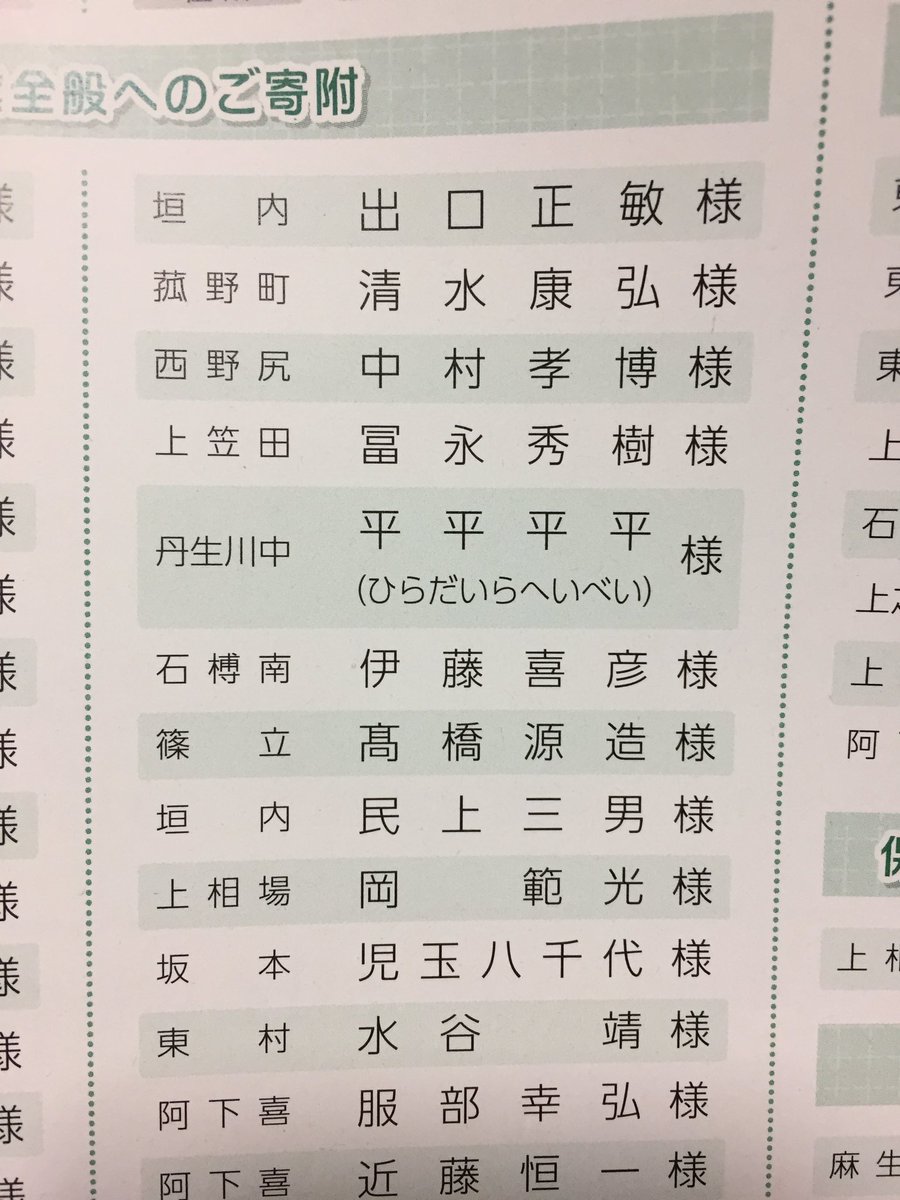 全般へのご寄附
垣内 出口正敏 様
菰野町 清水康弘 様
西野尻 中村孝博 様
上笠田 冨永秀樹 様
丹生川中 平平平平 様
(ひらだいらへいべい)
石榑南 伊藤喜彦 様
篠立 髙橋源造 様
垣内 民上三男 様
上相場 岡範光 様
坂本 児玉八千代 様
東村 水谷靖 様
阿下喜 服部幸弘 様
阿下喜 近藤恒一 様
様
様
様
様
様
様
様
様
様
様
様
様
様
東
上
石
上
上
阿
上
麻生